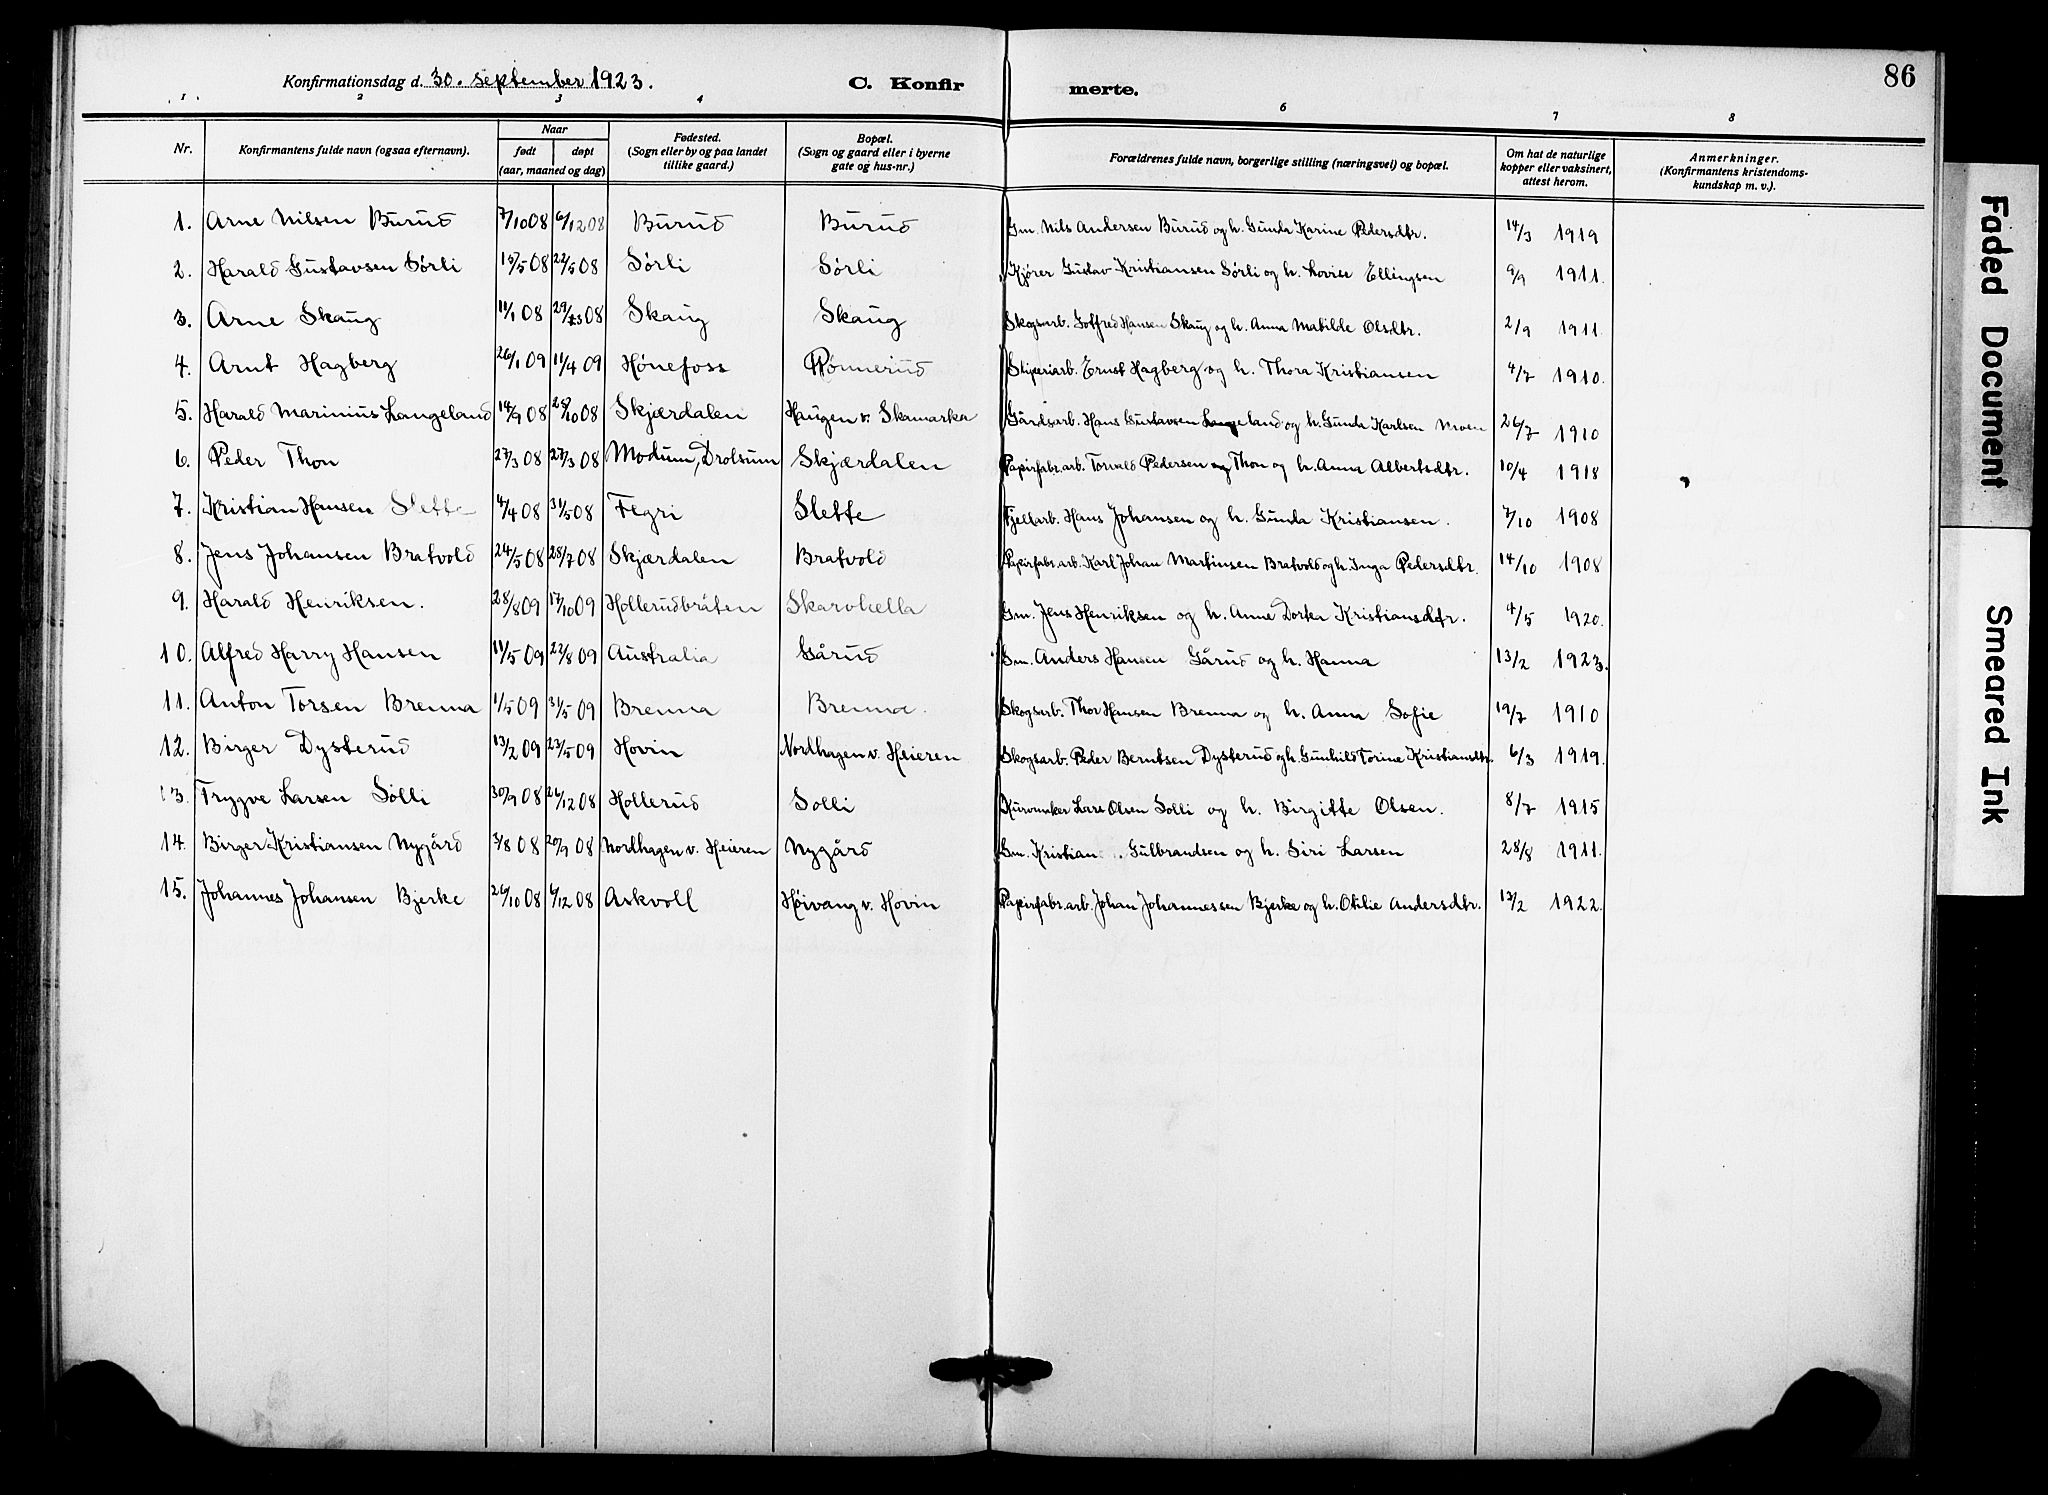 86
Konfirmationsdag d. 30. september 1923. C. Konfirmerte.
1 2 3 4 6 7 8
Nr. Konfirmantens fulde navn (ogsaa efternavn). Naar født døpt (aar, maaned og dag) Fødested. (Sogn eller by og paa landet tillike gaard.) Bopæl. (Sogn og gaard eller i byerne gate og hus-nr.) Forældrenes fulde navn, borgerlige stilling (næringsvei) og bopæl. Om hat de naturlige kopper eller vaksinert, attest herom. Anmerkninger. (Konfirmantens kristendomskundskap m. v.).
1. Arne Nilsen Burud 7/10 08 6/12 08 Burud Burud Gm. Nils Andersen Burud og h. Gunda Karine Pedersdtr. 14/3 1919
2. Harald Gustavsen Sørli 15/5 08 22/5 08 Sørli Sørli Kjører Gustav Kristiansen Sørli og h. Lovise Ellingsen 9/9 1911.
3. Arne Skaug 11/1 08 29/3 08 Skaug Skaug Skogsarb. Gotfred Hansen Skaug og h. Anna Matilde Olsdtr. 2/9 1911.
4. Arnt Hagberg 26/1 09 11/4 09 Hønefoss Rønnerud Sliperiarb. Ernst Hagberg og h. Thora Kristiansen 4/7 1910.
5. Harald Marinius Langeland 14/9 08 25/10 08 Skjærdalen Haugen v. Skamarka Gårdsarb. Hans Gustavsen Langeland og h. Gunda Karlsen Moen 26/7 1910
6. Peder Thon 27/3 08 27/3 08 Modum, Drolsum Skjærdalen Papirfabr.arb. Torvald Pedersen Thon og h. Anna Albertsdtr. 10/4 1918
7. Kristian Hansen Slette 4/4 08 31/5 08 Fegri Slette Fjellarb. Hans Johansen og h. Gunda Kristiansen. 7/10 1908
8. Jens Johansen Bratvold 24/5 08 28/7 08 Skjærdalen Bratvold Papirfabr.arb. Karl Johan Martinsen Bratvold og h. Inga Pedersdtr. 14/10 1908
9. Harald Henriksen. 28/8 09 17/10 09 Hollerudbråten Skarvhella Gm. Jens Henriksen og h. Anne Dortea Kristiansdtr. 4/5 1920.
10. Alfred Harry Hansen 11/5 09 22/8 09 Australia Gårud Gm. Anders Hansen Gårud og h. Hanna 13/2 1923.
11. Anton Torsen Brenna 1/5 09 31/5 09 Brenna Brenna. Skogsarb. Thor Hansen Brenna og h. Anna Sofie 19/7 1910
12. Birger Dysterud 13/2 09 23/5 09 Hovin Nordhagen v. Heieren Skogsarb. Peder Berntsen Dysterud og h. Gunhild Torine Kristiansdtr. 6/3 1919.
13. Trygve Larsen Solli 30/9 08 26/12 08 Hollerud Solli Kurvmaker Lars Olsen Solli og h. Birgitte Olsen. 8/7 1915
14. Birger Kristiansen Nygård 3/8 08 20/9 08 Nordhagen v. Heieren Nygård Gm. Kristian Gulbrandsen og h. Siri Larsen 28/8 1911.
15. Johannes Johansen Bjerke 26/10 08 6/12 08 Askvoll Høivang v. Hovin Papirfabr.arb. Johan Johannessen Bjerke og h. Othlie Andersdtr. 13/2 1922.
Faded Document
Smeared Ink